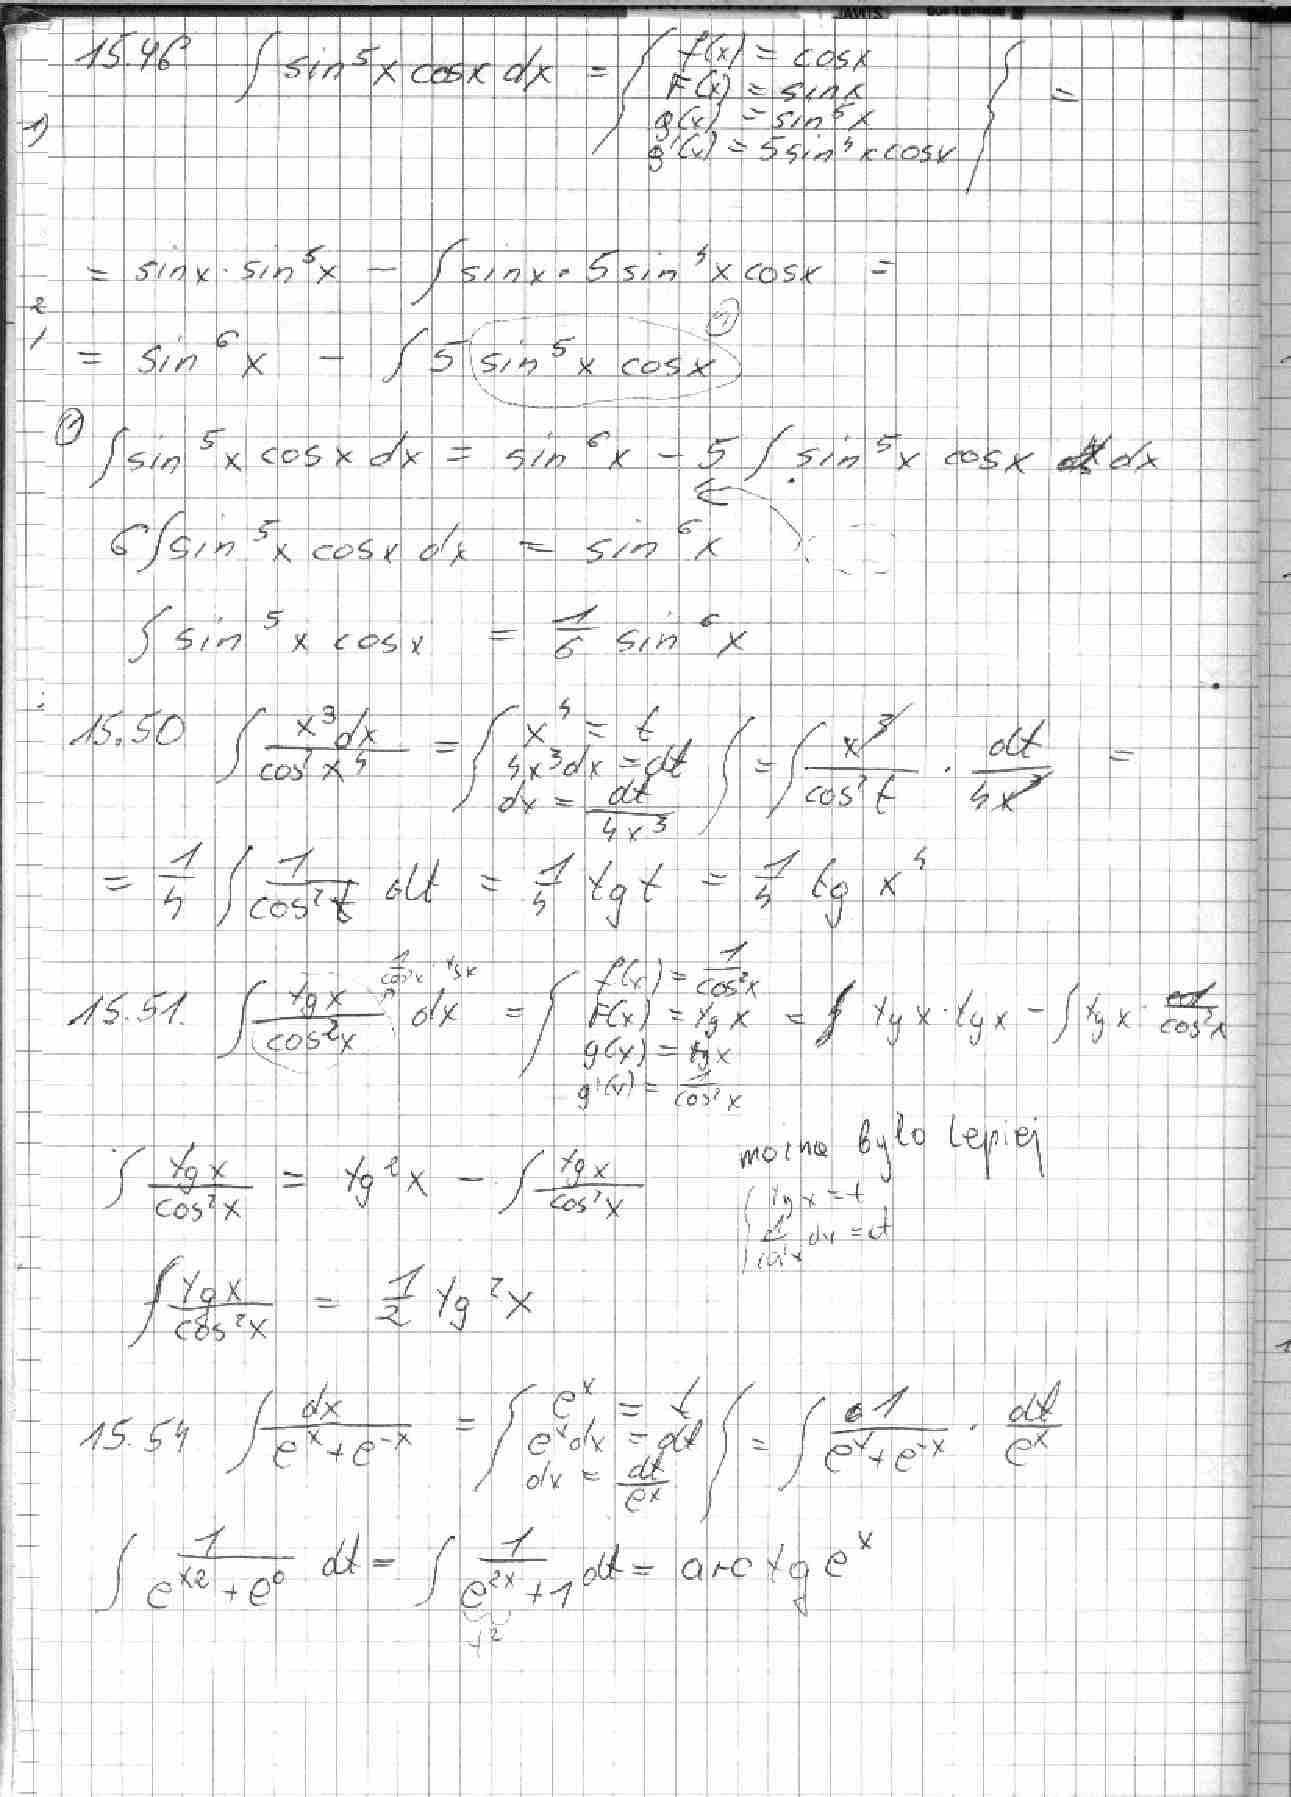 15.46 ∫ sin⁵x cosx dx = { f(x) = cosx
F(x) = sinx
g(x) = sin⁵x
g'(x) = 5sin⁴x cosx } =
1)
= sinx · sin⁵x − ∫ sinx · 5sin⁴x cosx =
2
1
= sin⁶x − ∫ 5 sin⁵x cosx ①
① ∫ sin⁵x cosx dx = sin⁶x − 5 ∫ sin⁵x cosx dx
6∫sin⁵x cosx dx = sin⁶x
∫ sin⁵x cosx = 1/6 sin⁶x
15.50 ∫ x³dx / cos²x⁴ = { x⁴ = t
4x³dx = dt
dx = dt / 4x³ } = ∫ x³ / cos²t · dt / 4x³ =
= 1/4 ∫ 1 / cos²t dt = 1/4 tg t = 1/4 tg x⁴
1/cos²x · tgx
15.51. ∫ tgx / cos²x dx = { f(x) = 1/cos²x
F(x) = tgx
g(x) = tgx
g'(x) = 1/cos²x = tgx · tgx − ∫ tgx · 1/cos²x
∫ tgx / cos²x = tg²x − ∫ tgx / cos²x
można było lepiej
{ tgx = t
1/cos²x dx = dt
∫ tgx / cos²x = 1/2 tg²x
15.54 ∫ dx / eˣ+e⁻ˣ = { eˣ = t
eˣdx = dt
dx = dt/eˣ } = ∫ 1 / eˣ+e⁻ˣ · dt / eˣ
∫ 1 / eˣ²+e⁰ dt = ∫ 1 / e²ˣ+1 dt = arc tg eˣ
t²